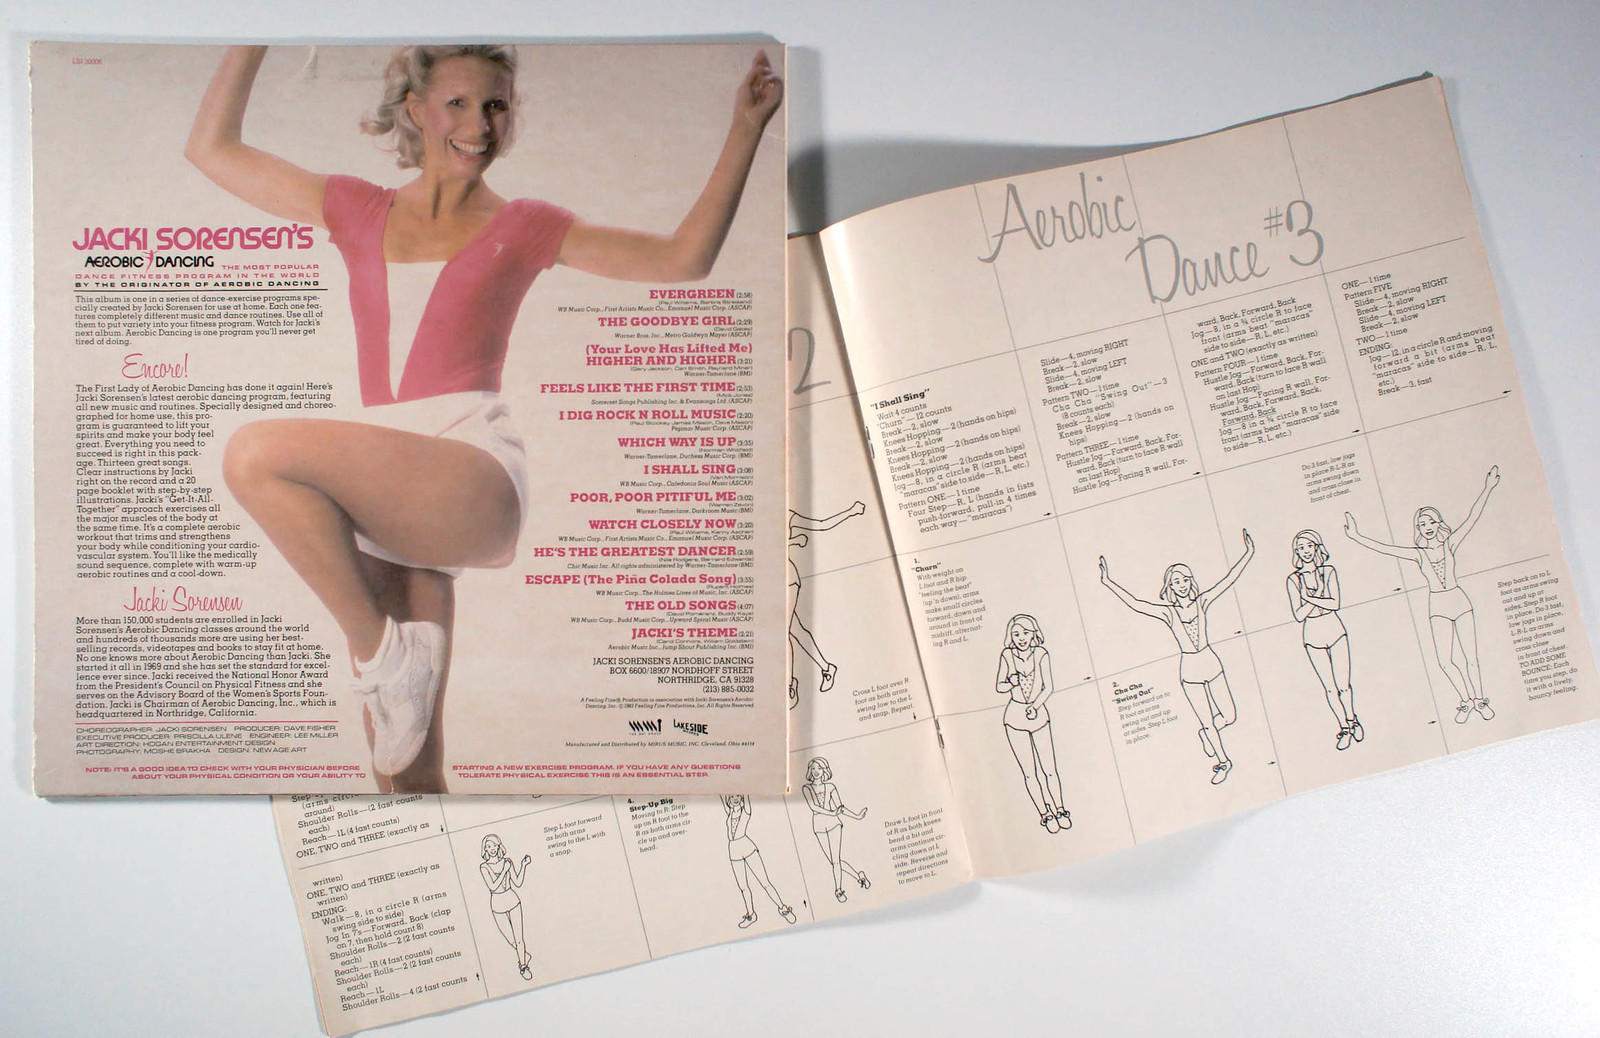 LSI 30006
JACKI SORENSEN'S
AEROBIC DANCING THE MOST POPULAR
DANCE FITNESS PROGRAM IN THE WORLD
BY THE ORIGINATOR OF AEROBIC DANCING
This album is one in a series of dance-exercise programs spe-
cially created by Jacki Sorensen for use at home. Each one fea-
tures completely different music and dance routines. Use all of
them to put variety into your fitness program. Watch for Jacki's
next album. Aerobic Dancing is one program you'll never get
tired of doing.
Encore!
The First Lady of Aerobic Dancing has done it again! Here's
Jacki Sorensen's latest aerobic dance program, featuring
all new music and routines. Specially designed and choreo-
graphed for home use, this pro-
gram is guaranteed to lift your
spirits and make your body feel
great. Everything you need to
succeed is right in this pack-
age. Thirteen great songs.
Clear instructions by Jacki
right on the record and a 20
page booklet with step-by-step
illustrations. Jacki's "Get-It-All-
Together" approach exercises all
the major muscles of the body at
the same time. It's a complete aerobic
workout that trims and strengthens
your body while conditioning your cardio-
vascular system. You'll like the medically
sound sequence, complete with warm-up
aerobic routines and a cool-down.
Jacki Sorensen
More than 150,000 students are enrolled in Jacki
Sorensen's Aerobic Dancing classes around the world
and hundreds of thousands more are using her best-
selling records, videotapes and books to stay fit at home.
No one knows more about Aerobic Dancing than Jacki. She
started it all in 1969 and she has set the standard for excel-
lence ever since. Jacki received the National Honor Award
from the President's Council on Physical Fitness and she
serves on the Advisory Board of the Women's Sports Foun-
dation. Jacki is Chairman of Aerobic Dancing, Inc., which is
headquartered in Northridge, California.
CHOREOGRAPHER: JACKI SORENSEN PRODUCER: DAVE FISHER
EXECUTIVE PRODUCER: PRISCILLA ULENE ENGINEER: LEE MILLER
ART DIRECTION: HOGAN ENTERTAINMENT DESIGN
PHOTOGRAPHY: MOSHE BRAKHA DESIGN: NEW AGE ART
NOTE: IT'S A GOOD IDEA TO CHECK WITH YOUR PHYSICIAN BEFORE
ABOUT YOUR PHYSICAL CONDITION OR YOUR ABILITY TO
STARTING A NEW EXERCISE PROGRAM. IF YOU HAVE ANY QUESTIONS
TOLERATE PHYSICAL EXERCISE THIS IS AN ESSENTIAL STEP.
EVERGREEN (2:58)
(Paul Williams, Barbra Streisand)
WB Music Corp., First Artists Music Co., Emanuel Music Corp. (ASCAP)
THE GOODBYE GIRL (2:29)
(David Gates)
Warner Bros. Inc., Metro Goldwyn Mayer (ASCAP)
(Your Love Has Lifted Me)
HIGHER AND HIGHER (3:21)
(Gary Jackson, Carl Smith, Raynard Miner)
Warner-Tamerlane (BMI)
FEELS LIKE THE FIRST TIME (2:53)
(Mick Jones)
Somerset Songs Publishing Inc. & Evansongs Ltd. (ASCAP)
I DIG ROCK N ROLL MUSIC (2:20)
(Paul Stookey, James Mason, Dave Mason)
Pepamar Music Corp. (ASCAP)
WHICH WAY IS UP (3:35)
(Norman Whitfield)
Warner-Tamerlane, Duchess Music Corp. (BMI)
I SHALL SING (3:08)
(Van Morrison)
WB Music Corp., Caledonia Soul Music (ASCAP)
POOR, POOR PITIFUL ME (3:02)
(Warren Zevon)
Warner-Tamerlane, Darkroom Music (BMI)
WATCH CLOSELY NOW (3:20)
(Paul Williams, Kenny Ascher)
WB Music Corp., First Artists Music Co., Emanuel Music Corp. (ASCAP)
HE'S THE GREATEST DANCER (2:59)
(Nile Rodgers, Bernard Edwards)
Chic Music Inc. All rights administered by Warner-Tamerlane (BMI)
ESCAPE (The Piña Colada Song) (3:55)
(Rupert Holmes)
WB Music Corp., The Holmes Lines of Music, Inc. (ASCAP)
THE OLD SONGS (4:07)
(David Pomeranz, Buddy Kaye)
WB Music Corp., Budd Music Corp., Upward Spiral Music (ASCAP)
JACKI'S THEME (2:21)
(Carol Connors, William Goldstein)
Aerobic Music Inc., Jump Shout Publishing Inc. (BMI)
JACKI SORENSEN'S AEROBIC DANCING
BOX 6600/18907 NORDHOFF STREET
NORTHRIDGE, CA 91328
(213) 885-0032
A Feeling Fine® Production in association with Jacki Sorensen's Aerobic
Dancing, Inc. © 1983 Feeling Fine Productions, Inc. All Rights Reserved.
LAKESIDE
Manufactured and Distributed by MIRUS MUSIC, INC. Cleveland, Ohio 44114
2
Aerobic
Dance #3
"I Shall Sing"
Wait 4 counts
"Churn"—12 counts
Break—2, slow
Knees Hopping—2 (hands on hips)
Break—2, slow
Knees Hopping—2 (hands on hips)
Break—2, slow
Knees Hopping—2 (hands on hips)
Jog—8, in a circle R (arms beat
"maracas" side to side—R, L, etc.)
Pattern ONE—1 time
Four Step—R, L (hands in fists
push-forward, pull-in 4 times
each way—"maracas")
Slide—4, moving RIGHT
Break—2, slow
Slide—4, moving LEFT
Break—2, slow
Pattern TWO—1 time
Cha Cha "Swing Out"—3
(8 counts each)
Break—2, slow
Knees Hopping—2 (hands on
hips)
Pattern THREE—1 time
Hustle Jog—Forward, Back, For-
ward, Back (turn to face R wall
on last Hop)
Hustle Jog—Facing R wall, For-
ward, Back, Forward, Back
Jog—8, in a ¾ circle R to face
front (arms beat "maracas"
side to side—R, L, etc.)
ONE and TWO (exactly as written)
Pattern FOUR—1 time
Hustle Jog—Forward, Back, For-
ward, Back (turn to face R wall
on last Hop)
Hustle Jog—Facing R wall, For-
ward, Back, Forward, Back,
Forward, Back
Jog—8 in a ¾ circle R to face
front (arms beat "maracas" side
to side—R, L, etc.)
ONE—1 time
Pattern FIVE
Slide—4, moving RIGHT
Break—2, slow
Slide—4, moving LEFT
Break—2, slow
TWO—1 time
ENDING:
Jog—12, in a circle R and moving
forward a bit (arms beat
"maracas" side to side—R, L,
etc.)
Break—3, fast
1.
"Churn"
With weight on
L foot and R hip
"feeling the beat"
(up 'n down), arms
make small circles
forward, down and
around in front of
midriff, alternat-
ing R and L.
2.
Cha Cha
"Swing Out"
Step forward on to
R foot as arms
swing out and up
at sides. Step L foot
in place.
Do 3 fast, low jogs
in place R-L-R as
arms swing down
and cross close in
front of chest.
Step back on to L
foot as arms swing
out and up at
sides. Step R foot
in place. Do 3 fast,
low jogs in place,
L-R-L as arms
swing down and
cross close
in front of chest.
TO ADD SOME
BOUNCE: Each
time you step, do
it with a lively,
bouncy feeling.
Cross L foot over R
foot as both arms
swing low to the L
and snap. Repeat.
Step
(arms circle
around)
Shoulder Rolls—(2 fast counts
each)
Reach—1L (4 fast counts)
ONE, TWO and THREE (exactly as
written)
ONE, TWO and THREE (exactly as
written)
ENDING:
Walk—8, in a circle R (arms
swing side to side)
Jog In 7's—Forward, Back (clap
on 7, then hold count 8)
Shoulder Rolls—2 (2 fast counts
each)
Reach—1R (4 fast counts)
Shoulder Rolls—2 (2 fast counts
each)
Reach—1L
Shoulder Rolls—4 (2 fast counts
Step L foot forward
as both arms
swing to the L with
a snap.
4.
Step-Up Big
Moving to R: Step
up on R foot to the
R as both arms cir-
cle up and over-
head.
Draw L foot in front
of R as both knees
bend a bit and
arms continue cir-
cling down at L
side. Reverse and
repeat directions
to move to L.